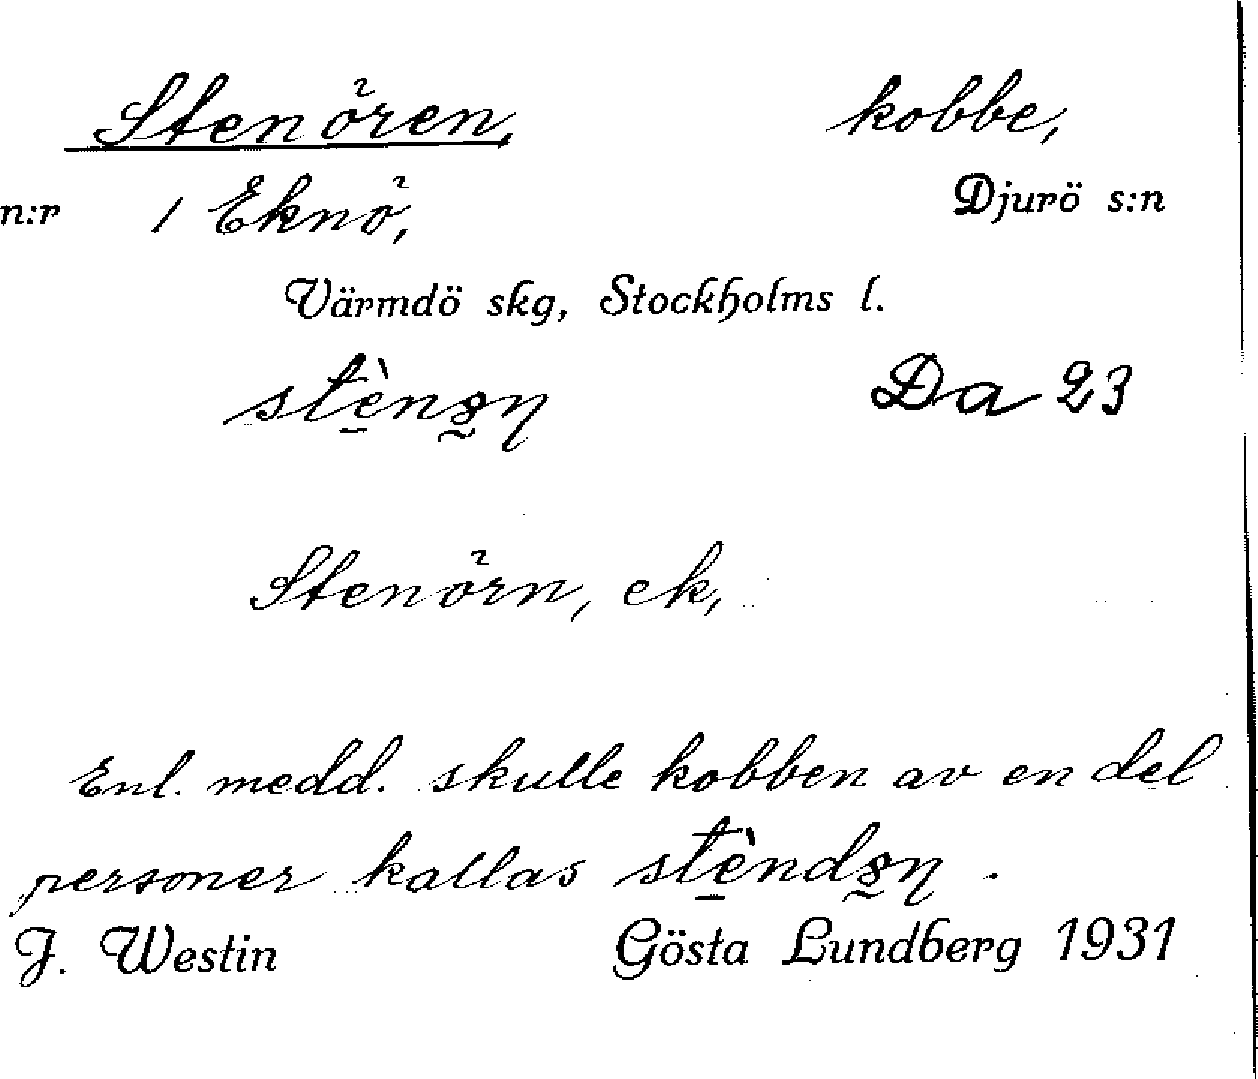 Stenören, kobbe,
n:r 1 Eknö, Djurö s:n
Värmdö skg, Stockholms l.
Da 23
Stenörn, ek,
Enl. medd. skulle kobben av en del
personer kallas
J. Westin Gösta Lundberg 1931